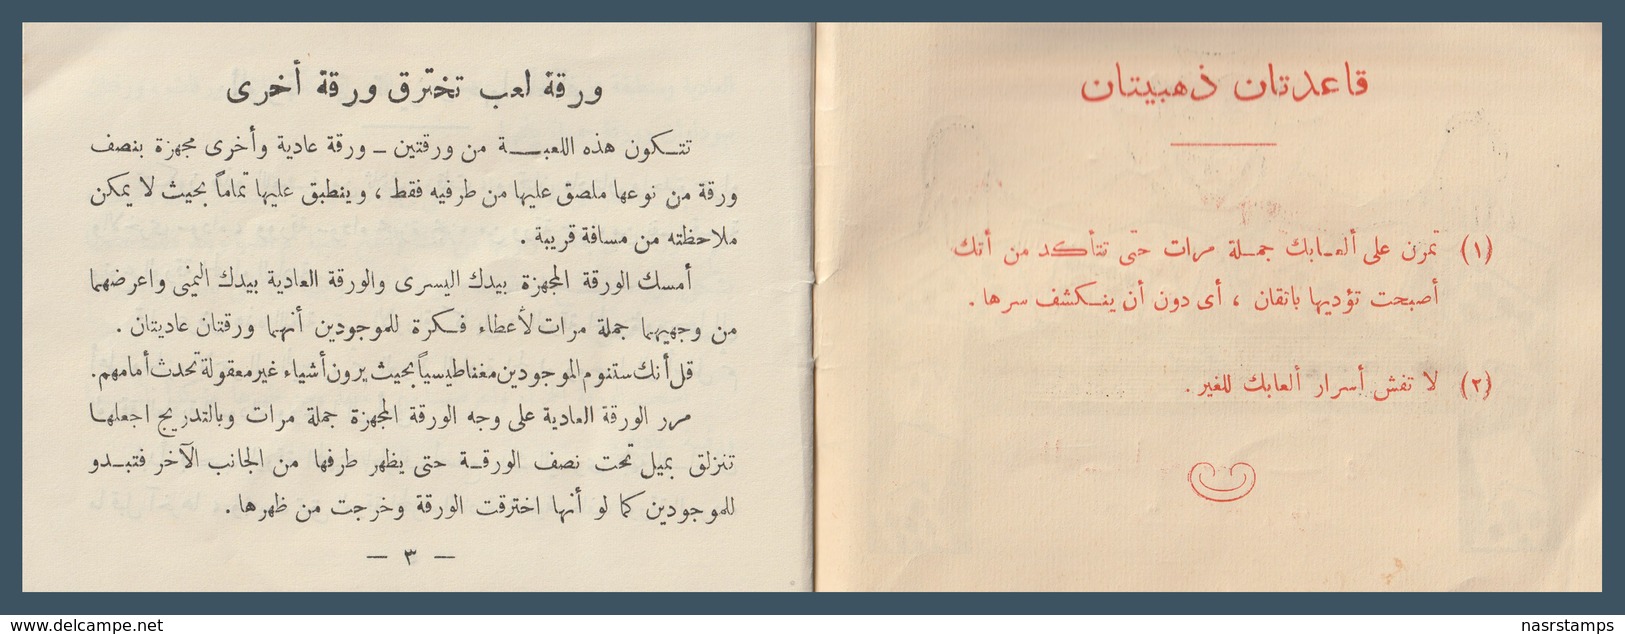 قاعدتان ذهبيتان
(١) تمرن على ألعابك جملة مرات حتى تتأكد من أنك
أصبحت تؤديها باتقان ، أى دون أن ينكشف سرها .
(٢) لا تفش أسرار ألعابك للغير .
ورقة لعب تخترق ورقة أخرى
تتكون هذه اللعبة من ورقتين - ورقة عادية وأخرى مجهزة بنصف
ورقة من نوعها ملصق عليها من طرفيه فقط ، وينطبق عليها تماماً بحيث لا يمكن
ملاحظته من مسافة قريبة .
أمسك الورقة المجهزة بيدك اليسرى والورقة العادية بيدك اليمنى واعرضهما
من وجهيهما جملة مرات لأعطاء فكرة للموجودين أنهما ورقتان عاديتان .
قل أنك ستنوم الموجودين مغناطيسياً بحيث يرون أشياء غير معقولة تحدث أمامهم .
مرر الورقة العادية على وجه الورقة المجهزة جملة مرات وبالتدريج اجعلها
تنزلق بميل تحت نصف الورقة حتى يظهر طرفها من الجانب الآخر فتبدو
للموجودين كما لو أنها اخترقت الورقة وخرجت من ظهرها .
— ٣ —
www.delcampe.net
nasrstamps